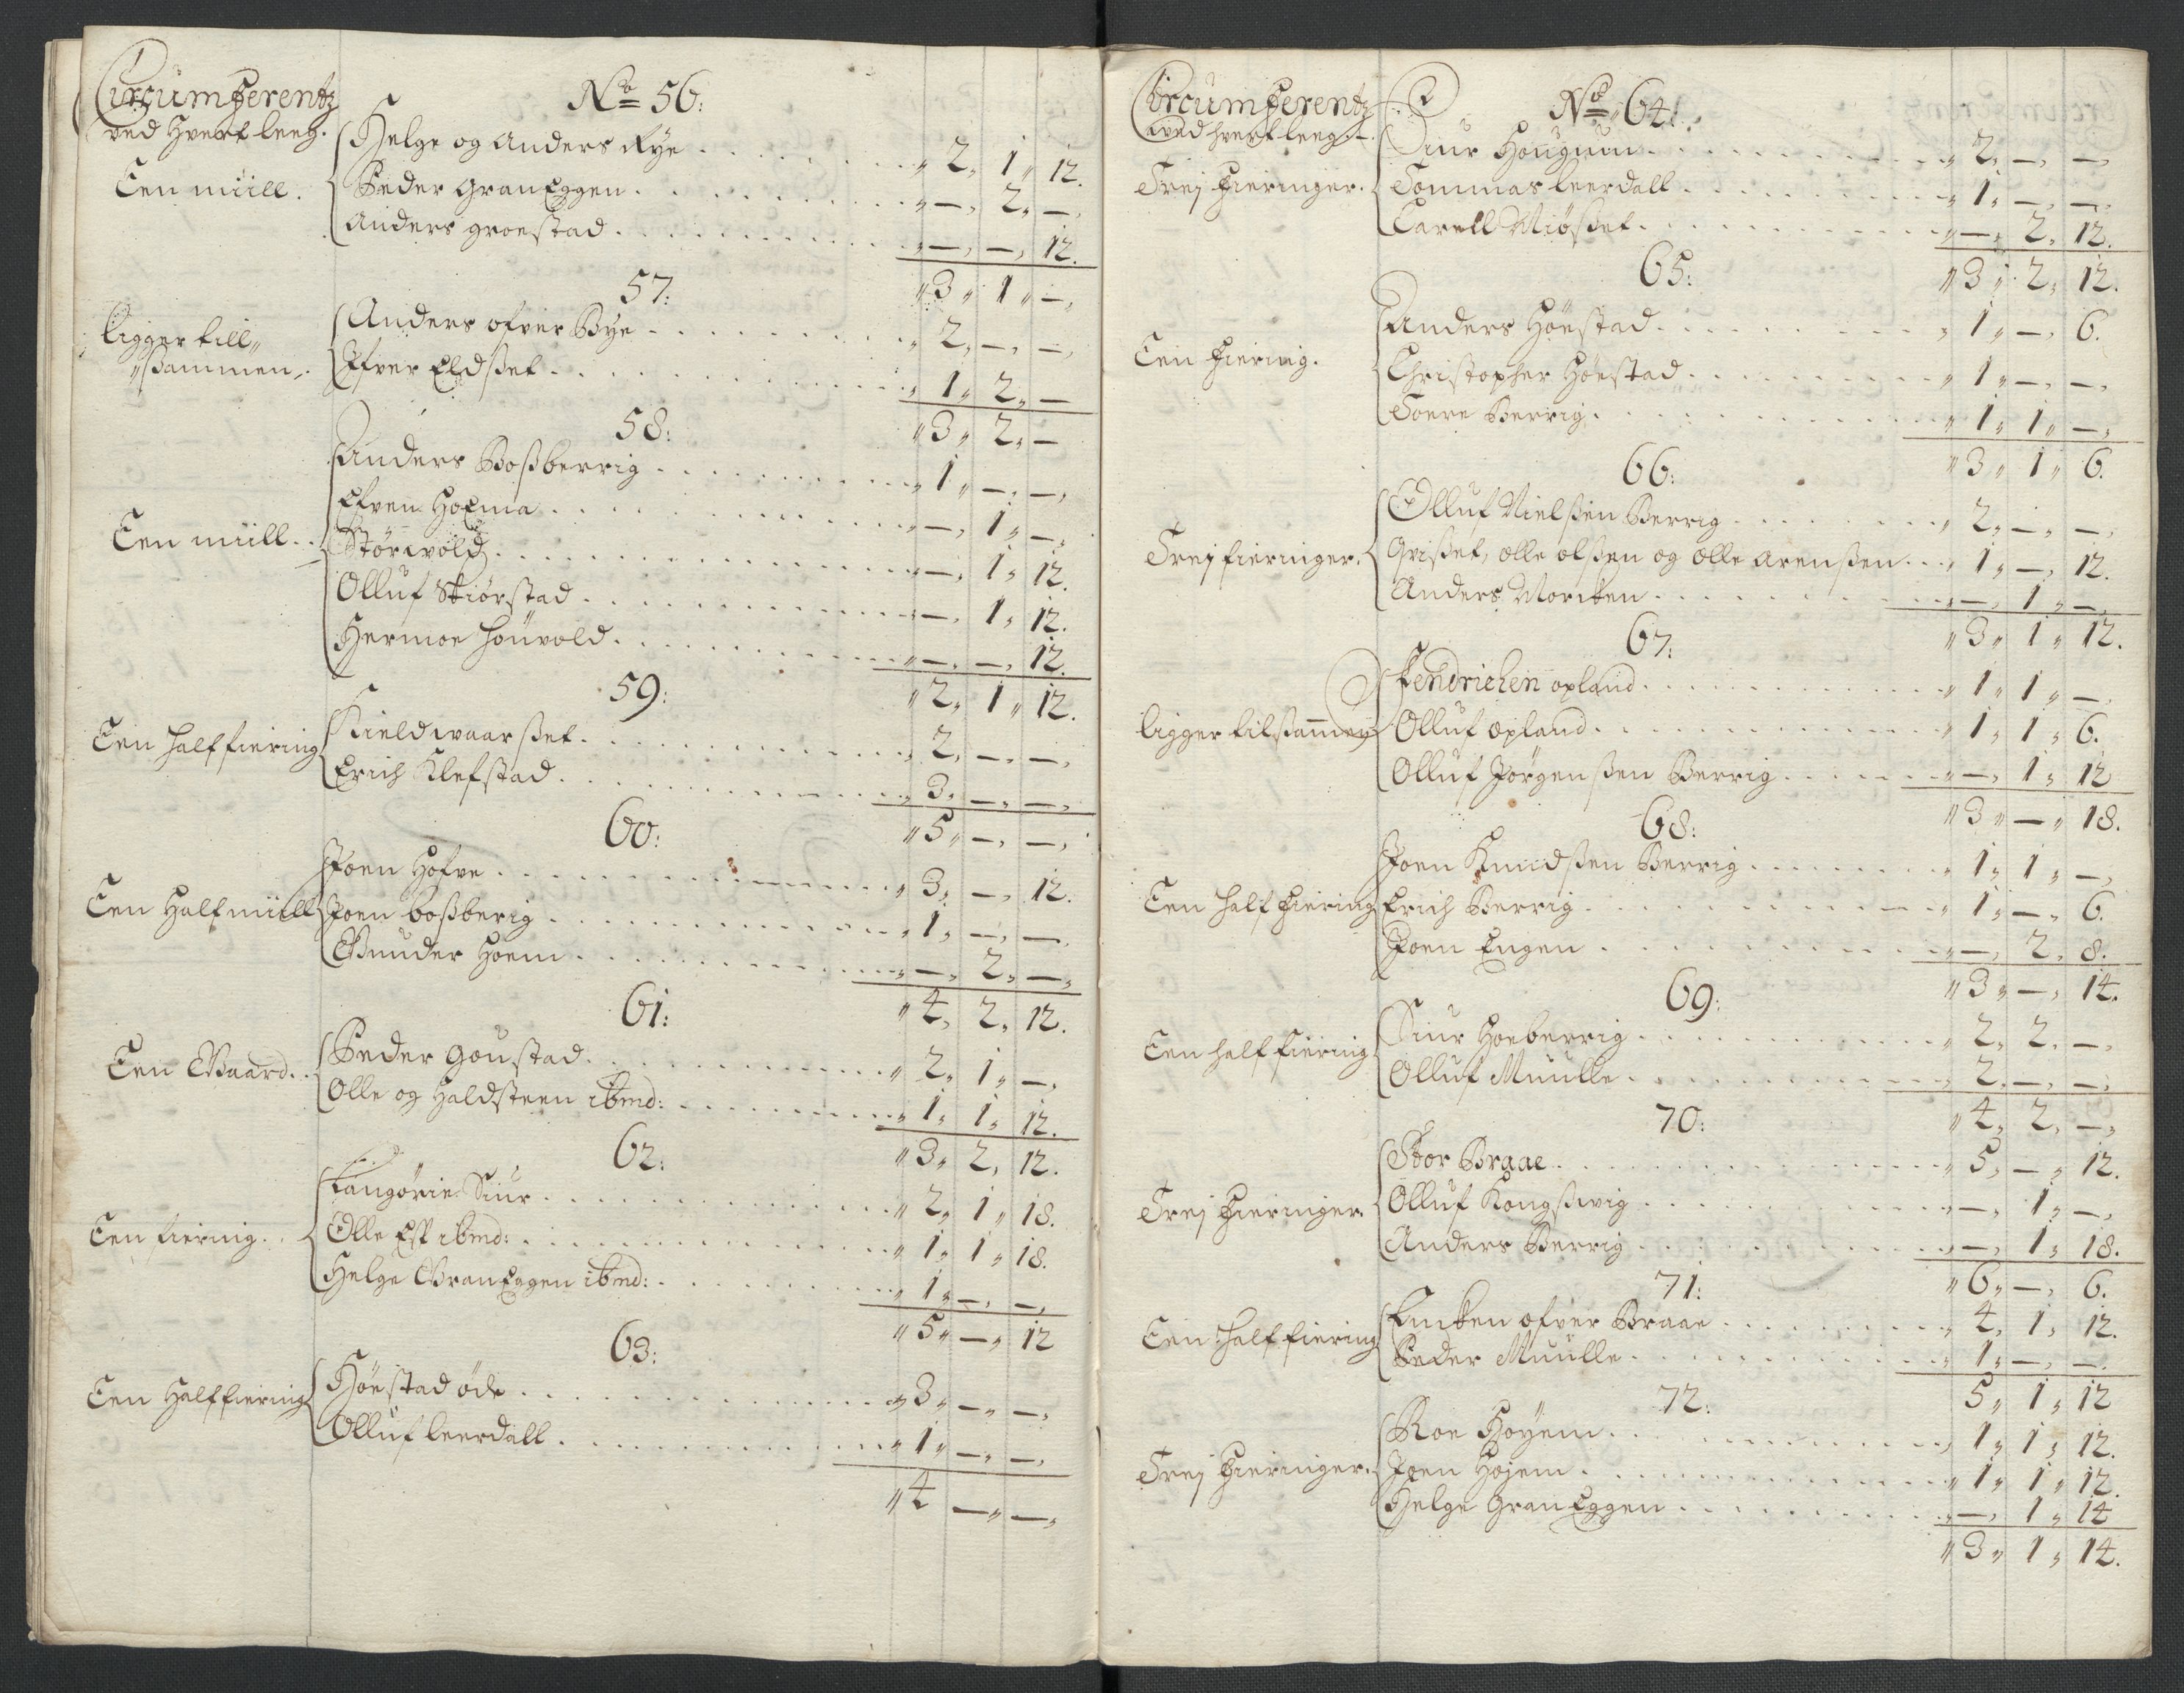 Circumferentz
ved hverf leeg.
No 56:
Een miill.
Helge og Anders Rye . . . . . „ 2„ 1„ 12.
Peder GranEggen . . . . . „ —„ 2„ —„
Anders groestad . . . . . „ —„ —„ 12.
„ 3„ 1„ —„
57:
ligger till„
„sammen„.
Anders ofver Bye . . . . . „ 2„ —„ —„
Ifver Eldset . . . . . „ 1„ 2„ —
„ 3„ 2„ —
58:
Een miill . .
Anders Bossberrig . . . . . „ 1„ —„ —„
Efven Hoema . . . . . „ —„ 1„ —„
Störwold . . . . . „ —„ 1„ 12.
Olluf Skiörstad . . . . . „ —„ 1„ 12.
Hermoe Houvold . . . . . „ —„ —„ 12.
„ 2„ 1„ 12.
59:
Een half fiering
Kield waarset . . . . . „ 2„ —„ —„
Erich Klefstad . . . . . „ 3„ —„ —„
„ 5„ —„ —„
60:
Een Half miill
Joen Hofve . . . . . „ 3„ —„ 12.
Joen bossberig . . . . . „ 1„ —„ —„
Gunder Hoem . . . . . „ —„ 2„ —„
„ 4„ 2„ 12.
61:
Een Gaard . .
Peder Goustad . . . . . „ 2„ 1„ —„
Olle og Haldsteen ibmd: . . . . . „ 1„ 1„ 12.
„ 3„ 2„ 12.
62:
Een fiering . .
Langörie Siur . . . . . „ 2„ 1„ 18.
Olle Esp ibmd: . . . . . „ 1„ 1„ 18.
Helge GranEggen ibmd: . . . . . „ 1„ —„ —„
„ 5„ —„ 12
63:
Een Half fiering
Höestad öde . . . . . „ 3„ —„ —„
Olluf leerdall . . . . . „ 1„ —„ —„
„ 4 —„ —„
Circumferentz
wed hverf leeg.
No 64:
Trej Fieringer.
Siur Hougum . . . . . „ 2„ —„ —„
Tommas leerdall . . . . . „ 1„ —„ —„
Carell Miösset . . . . . „ —„ 2„ 12.
„ 3„ 2„ 12.
65:
Een Fiering.
Anders Höestad . . . . . „ 1„ —„ 6.
Christopher Höestad . . . . . „ 1„ —„ —„
Toere Berrig . . . . . „ 1„ 1„ —„
„ 3„ 1„ 6.
66:
Trej fieringer.
Olluf Nielssen Berrig . . . . . „ 2„ —„ —„
Grisset, olle olssen og olle arenssen . . . „ 1„ —„ 12.
Anders Morcken . . . . . „ —„ 1„ —„
„ 3„ 1„ 12.
67:
ligger tilsammen
Fendrichen opland . . . . . „ 1„ 1„ —„
Olluf opland . . . . . „ 1„ 1„ 6.
Olluf Jörgenssen Berrig . . . . . „ —„ 1„ 12
„ 3„ —„ 18.
68:
Een half Fiering
Joen Knudssen Berrig . . . . . „ 1„ 1„ —„
Erich Berrig . . . . . „ 1„ —„ 6.
Joen Engen . . . . . „ —„ 2„ 8.
„ 3„ —„ 14.
69:
Een half fiering
Siur Hoeberrig . . . . . „ 2„ 2„ —„
Olluf Muulle . . . . . „ 2„ —„ —„
„ 4„ 2„ —„
70:
Trej Fieringer.
Stor Braae . . . . . „ 5„ —„ 12.
Olluf Kongsswig . . . . . „ —„ 1„ —„
Anders Berrig . . . . . „ —„ 1„ 18.
„ 6„ —„ 6.
71:
Een half fiering
Encken ofver Braae . . . . . „ 4„ 1„ 12.
Peder Muulle . . . . . „ 1„ —„ —„
5„ 1„ 12
72:
Trej Fieringer.
Roe Höyem . . . . . „ 1„ 1„ 12.
Joen Hojem . . . . . „ 1„ 1„ 12.
Helge GranEggen . . . . . „ —„ 1„ 14
„ 3„ 1„ 14.